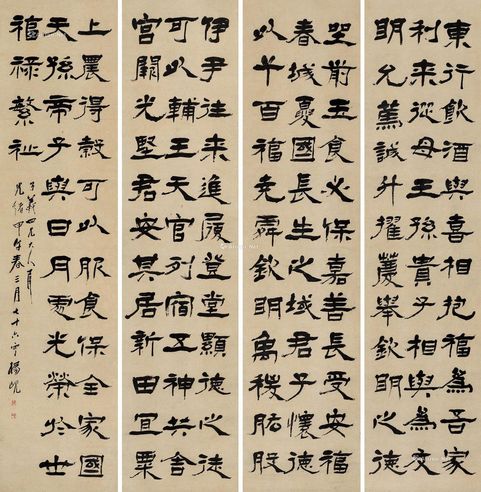 東行飲酒與喜相抱福為吾家
利來從母王孫貴子相與為友
明允篤誠升擢薦舉欽明之德
坐前玉食必保嘉善長受安福
春城夏國長生之域君子懷德
以干百福堯舜欽明禹稷股肱
伊尹往來進履登堂顯德之徒
可以輔王天官列宿五神共舍
宮闕光堅君安其居新田宜粟
上農得穀可以服食保全家國
天孫帝子與日月處光榮於世
福祿繁祉
子義四兄大人
光緒甲午春三月七十六 楊峴